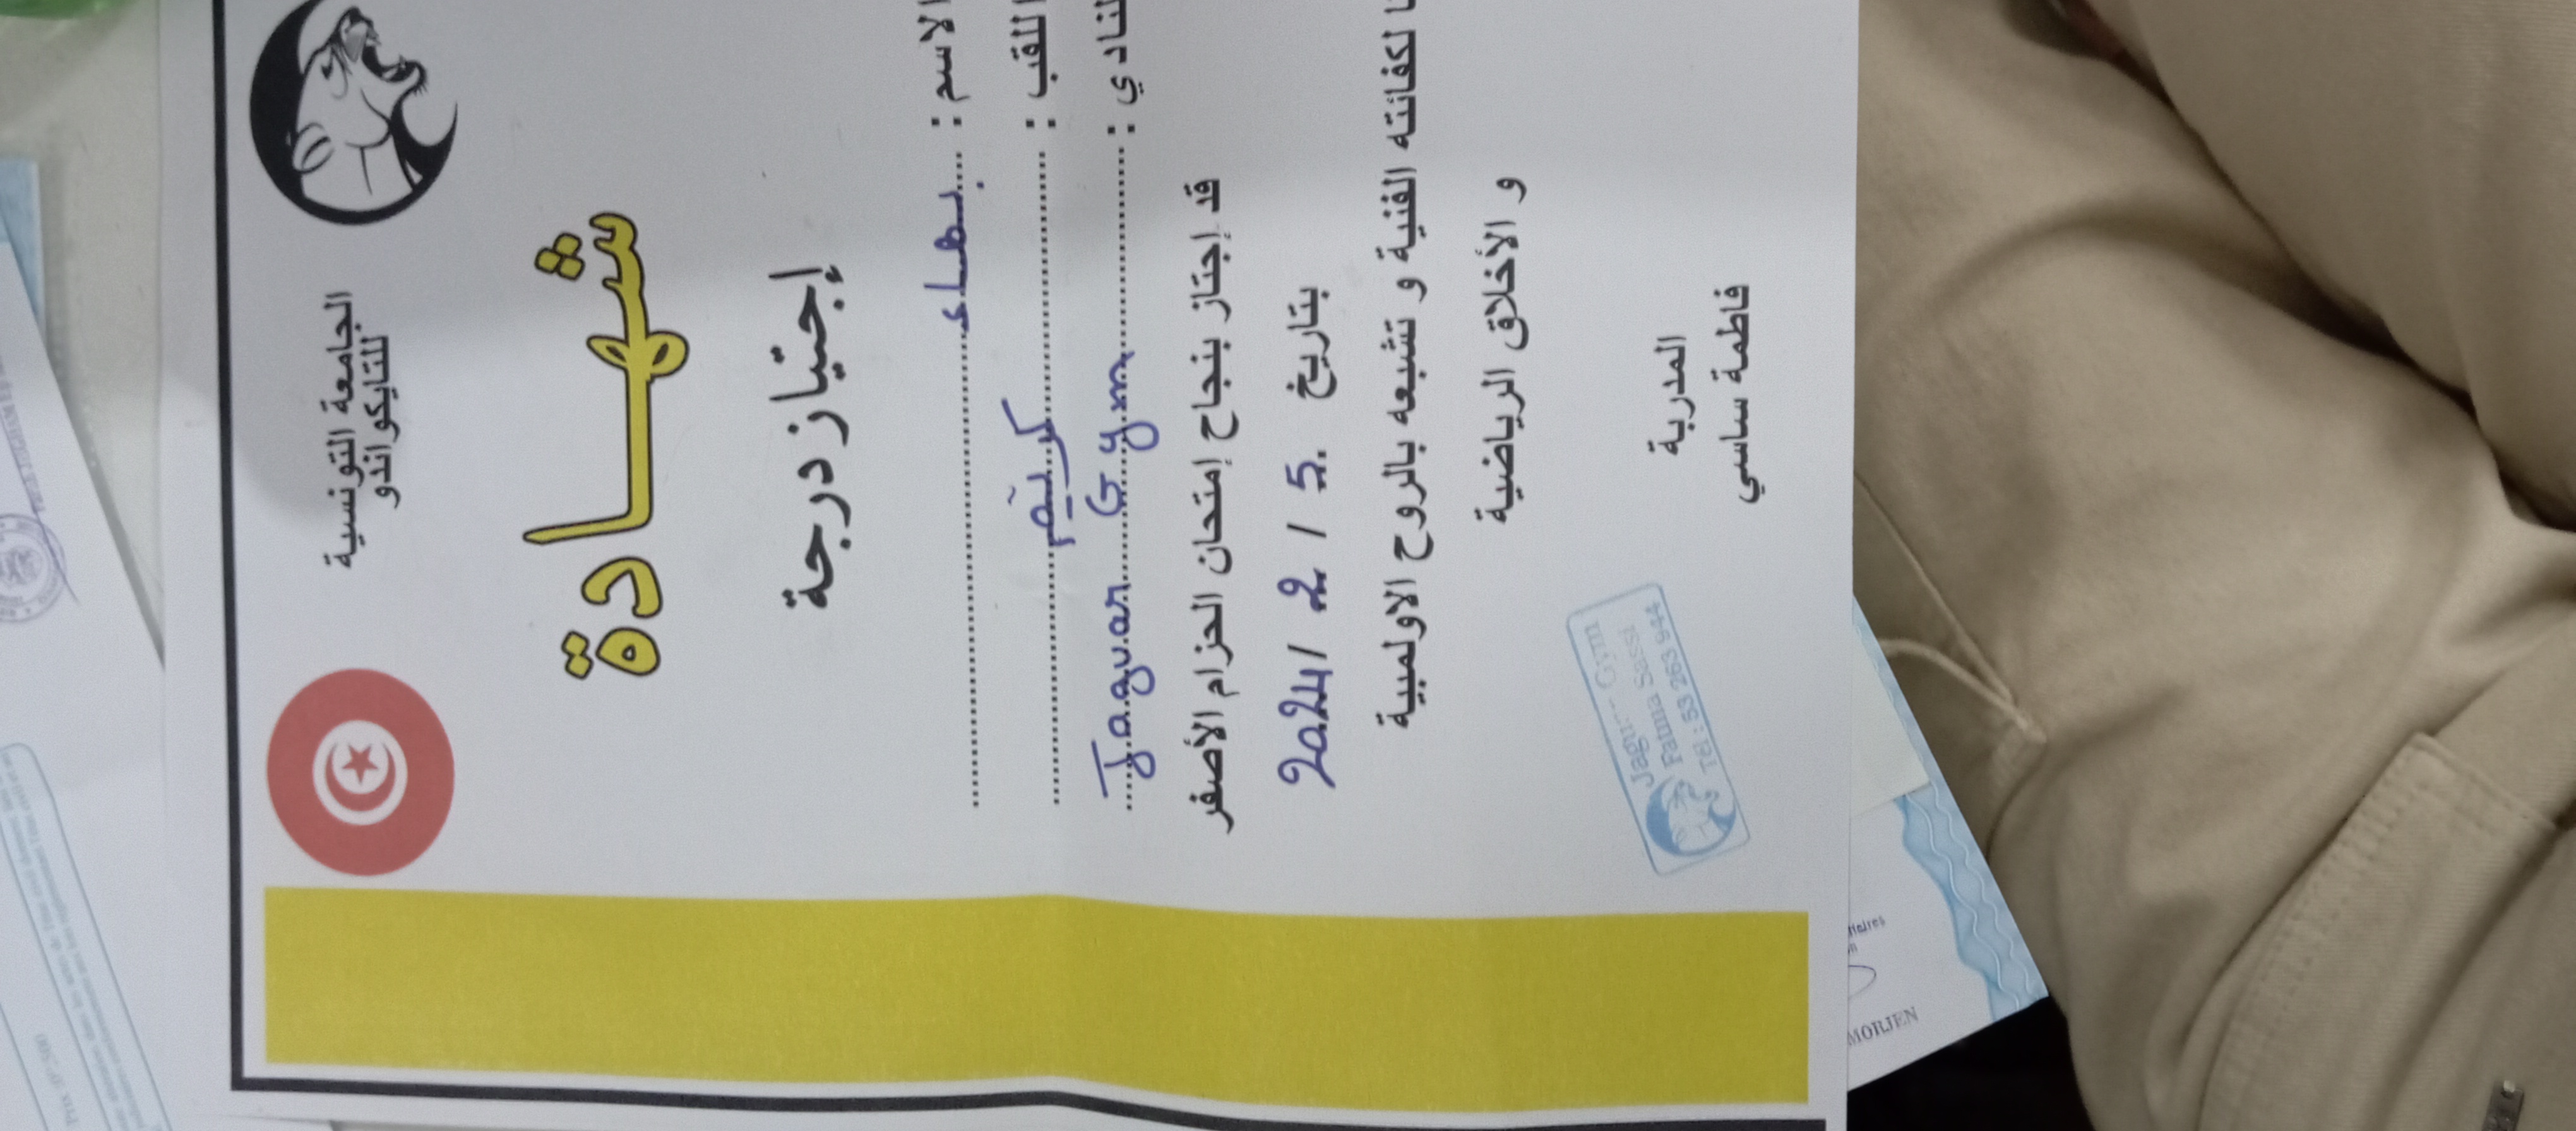 الجامعة التونسية
للتايكواندو
شهادة
إجتياز درجة
الاسم : بهاء
اللقب : كريم
النادي : Jaguar Gym
قد إجتاز بنجاح إمتحان الحزام الأصفر
بتاريخ 5 / 2 / 2024
لكفائته الفنية و تشبعه بالروح الاولمبية
و الأخلاق الرياضية
المدربة
فاطمة ساسي
Gym
Fatma Sassi
Tél : 53 263 944
MORJEN